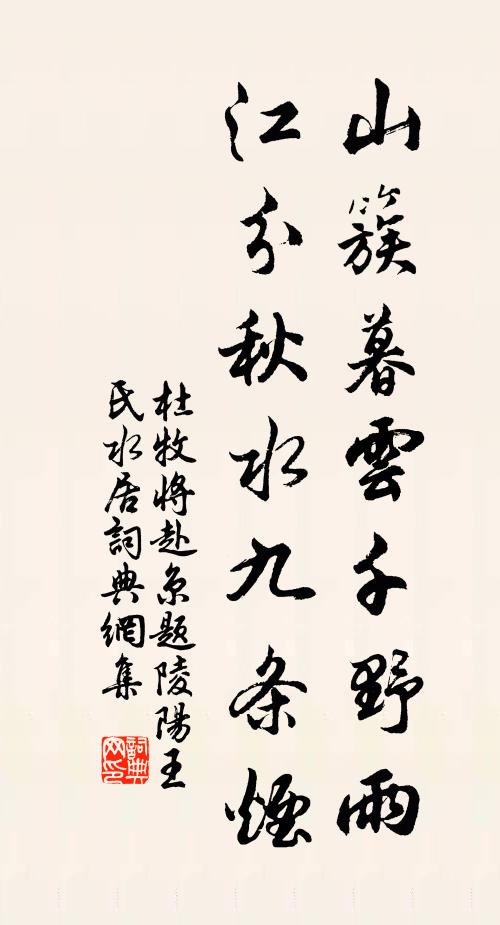 山簇暮雲千野雨
江分秋水九条煙
杜牧將赴京題陵陽王
氏水居詞典網集
詞典网印